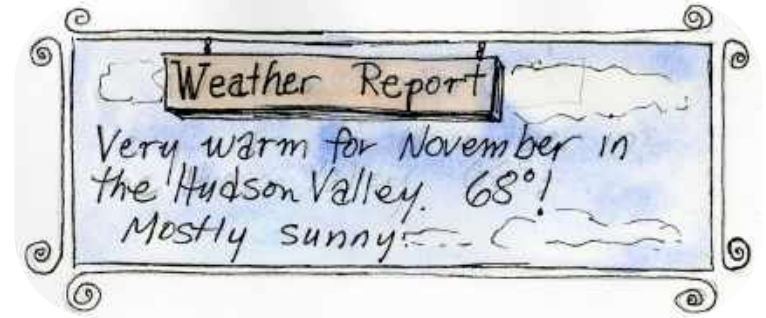 Weather Report
Very warm for November in
the Hudson Valley. 68°!
Mostly sunny.